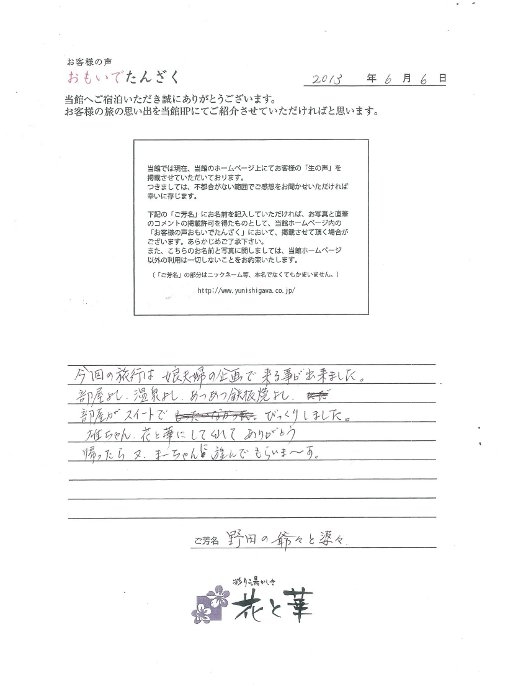 お客様の声
おもいでたんざく
2013 年 6 月 6 日
当館へご宿泊いただき誠にありがとうございます。
お客様の旅の思い出を当館HPにてご紹介させていただければと思います。
当館では現在、当館のホームページ上にてお客様の「生の声」を
掲載させていただいております。
つきましては、不都合がない範囲でご感想をお聞かせいただければ
幸いに存じます。
下記の「ご芳名」にお名前を記入していただければ、お写真と直筆
のコメントの掲載許可を得たものとして、当館ホームページ内の
「お客様の声おもいでたんざく」において、掲載させて頂く場合が
ございます。あらかじめご了承下さい。
また、こちらのお名前と写真に関しましては、当館ホームページ
以外の利用は一切しないことをお約束いたします。
(「ご芳名」の部分はニックネーム等、本名でなくてもかまいません。)
http://www.yunishigawa.co.jp/
今回の旅行は娘夫婦の企画で来る事が出来ました。
部屋よし、温泉よし、あつあつ鉄板焼よし、
部屋がスイートで びっくりしました。
ちゃん、花と華にしてくれてありがとう
帰ったら又、まーちゃんに遊んでもらいま〜す。
ご芳名 野田の爺々と婆々
彩り湯かしき
花と華